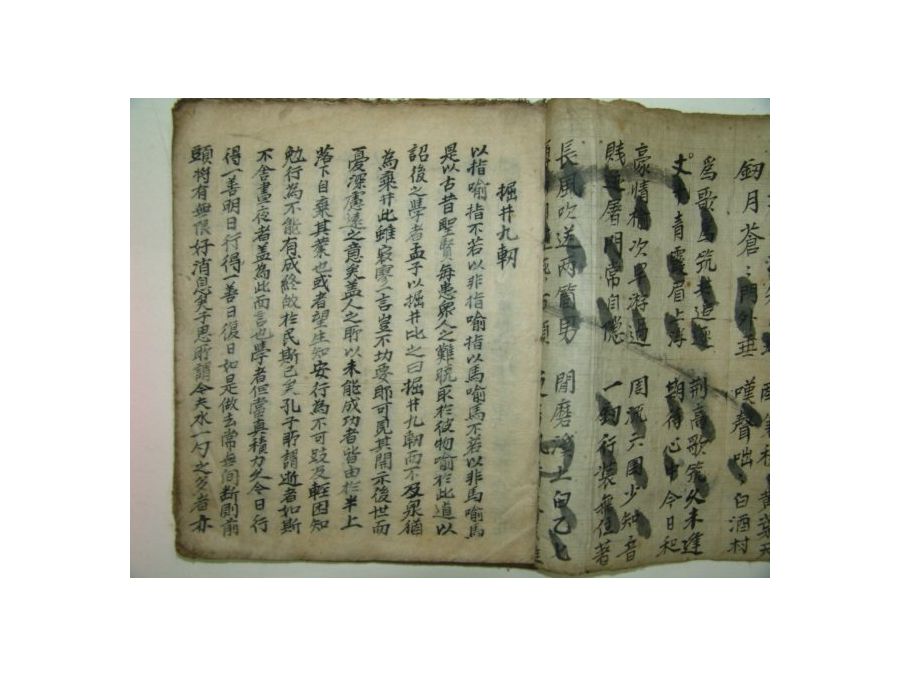 釼月蒼〻門外垂 嘆聲咄〻白酒村
爲歌 筑老追 荊高歌筑久未逢
丈 靑 眉上 期待心中今日和
豪情 次 游過 周流六國少知音
賤 屠門常自隱 一 行裝無住著
長風吹送兩箇男 閒磨 上白
掘井九軔
以指喻指不若以非指喻指以馬喻馬不若以非馬喻馬
是以古昔聖賢每患衆人之難曉取於彼物喻於此道以
詔後之學者孟子以掘井比之曰掘井九軔而不及泉猶
爲棄井此雖寂廖一言豈不切要耶可見其開示後世而
憂深慮遠之意矣盖人之所以未能成功者皆由於半上
落下自棄其業也或者望生知安行爲不可跂及輕困知
勉行爲不能有成終故於民斯已矣孔子所謂逝者如斯
不舍晝夜者盖爲此而言也學者但當眞積力久今日行
得一善明日行得一善日復日如是做去常無間断則前
頭將有無限好消息矣子思所謂今夫水一勺之多者亦